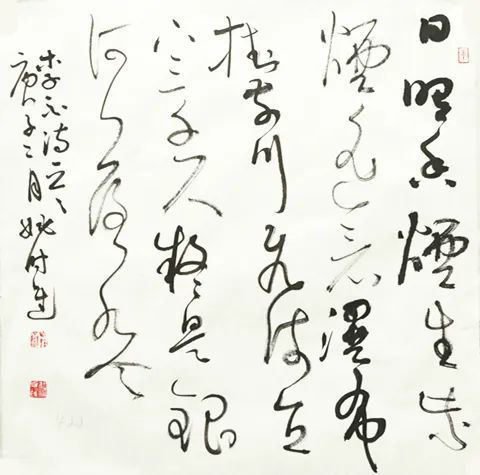 日照香爐生紫
煙遙看瀑布
挂前川飛流直
下三千尺疑是銀
河落九天
李白詩一首
庚子二月姚时